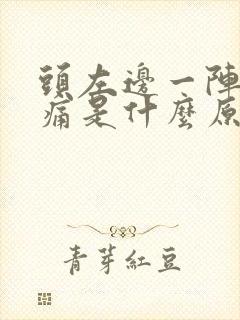 頭左邊一陣
痛是什麼原
青芽紅豆